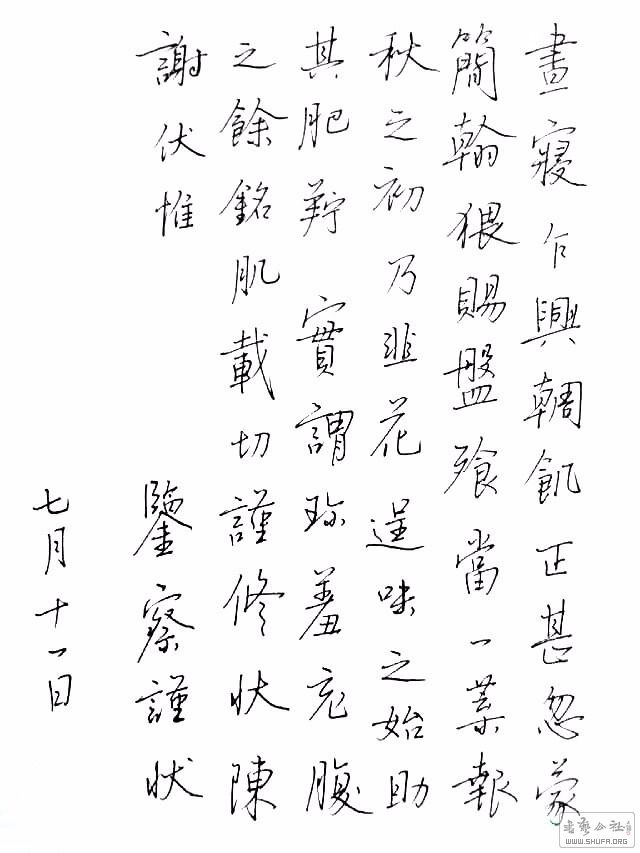 晝寢乍興輖飢正甚忽蒙
簡翰猥賜盤飧當一葉報
秋之初乃韭花逞味之始助
其肥羜實謂珍羞充腹
之餘銘肌載切謹修狀陳
謝伏惟
鑒察謹狀
七月十一日
書藝公社
WWW.SHUFA.ORG